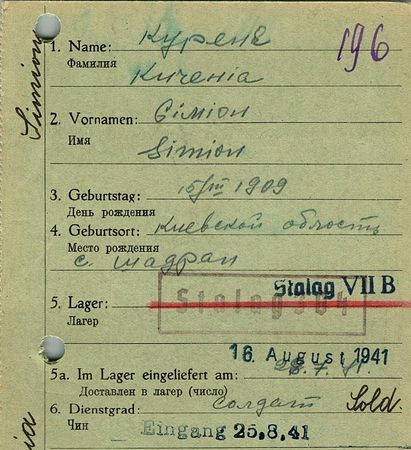 196
Simion
1. Name: Курене
Фамилия Kurenia
2. Vornamen: Сімион
Имя Simion
3. Geburtstag: 15/III 1909
День рождения
4. Geburtsort: Киевской область
Место рождения
с. Шадран
Stalag VII B
5. Lager: Stalag 304
Лагер
16. August 1941
5a. Im Lager eingeliefert am: 28.7.41.
Доставлен в лагер (число)
6. Dienstgrad: солдат Sold.
Чин Eingang 25.8.41